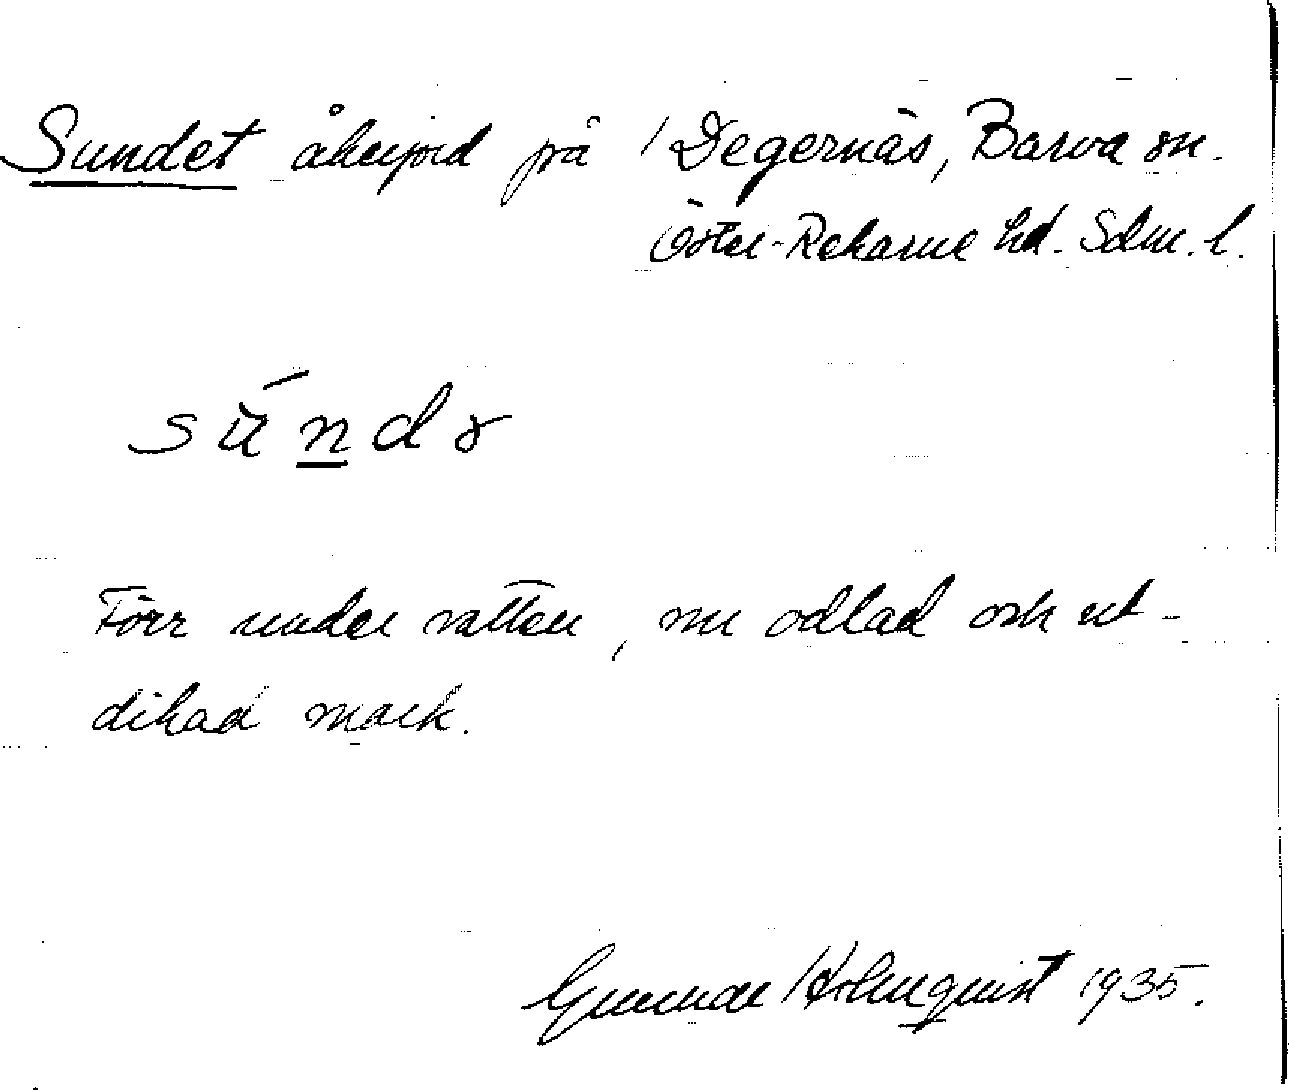 Sundet åkerjord på Degernäs, Barva sn.
Öster-Rekarne hd. Sdm. l.
Förr under vatten, nu odlad och ut-
dikad mark.
Gunnar Holmquist 1935.